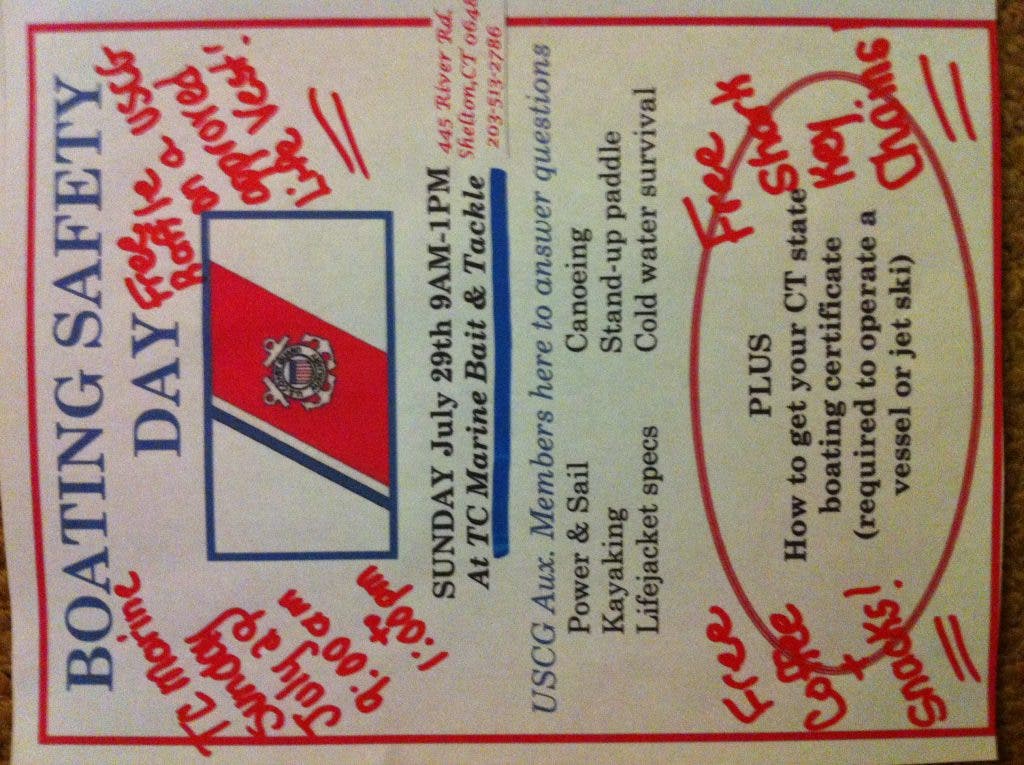 BOATING SAFETY
DAY
TC marine
Sunday
July 29
9:00 am
to
1:00 pm
Free
Raffle
on a USCG
approved
Life Vest!
SUNDAY July 29th 9AM-1PM
At TC Marine Bait & Tackle
445 River Rd.
Shelton,CT 0648
203-513-2786
USCG Aux. Members here to answer questions
Power & Sail Canoeing
Kayaking Stand-up paddle
Lifejacket specs Cold water survival
PLUS
How to get your CT state
boating certificate
(required to operate a
vessel or jet ski)
Free
Coffee
+
Snacks!
Free
Shark
Key
Chains